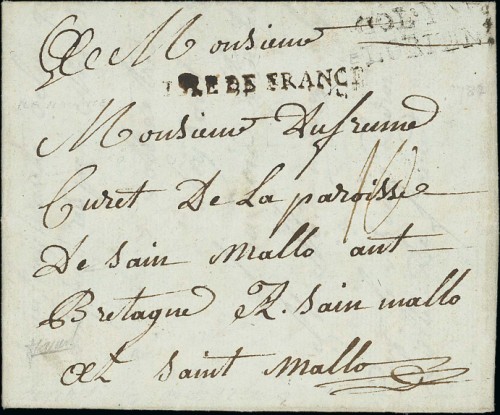 A Monsieur
COL
L'ORIENT
ISLE DE FRANCE
Monsieur Dufresne
Curet De La paroisse
16
De sain mallo ant
Bretagne A. sain mallo
at saint mallo